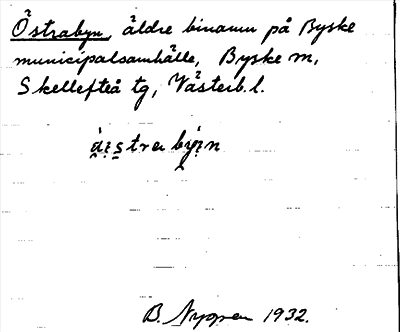 Östrabyn, äldre binamn på Byske
municipalsamhälle, Byske sn,
Skellefteå tg, Västerb. l.
B. Nyman 1932.